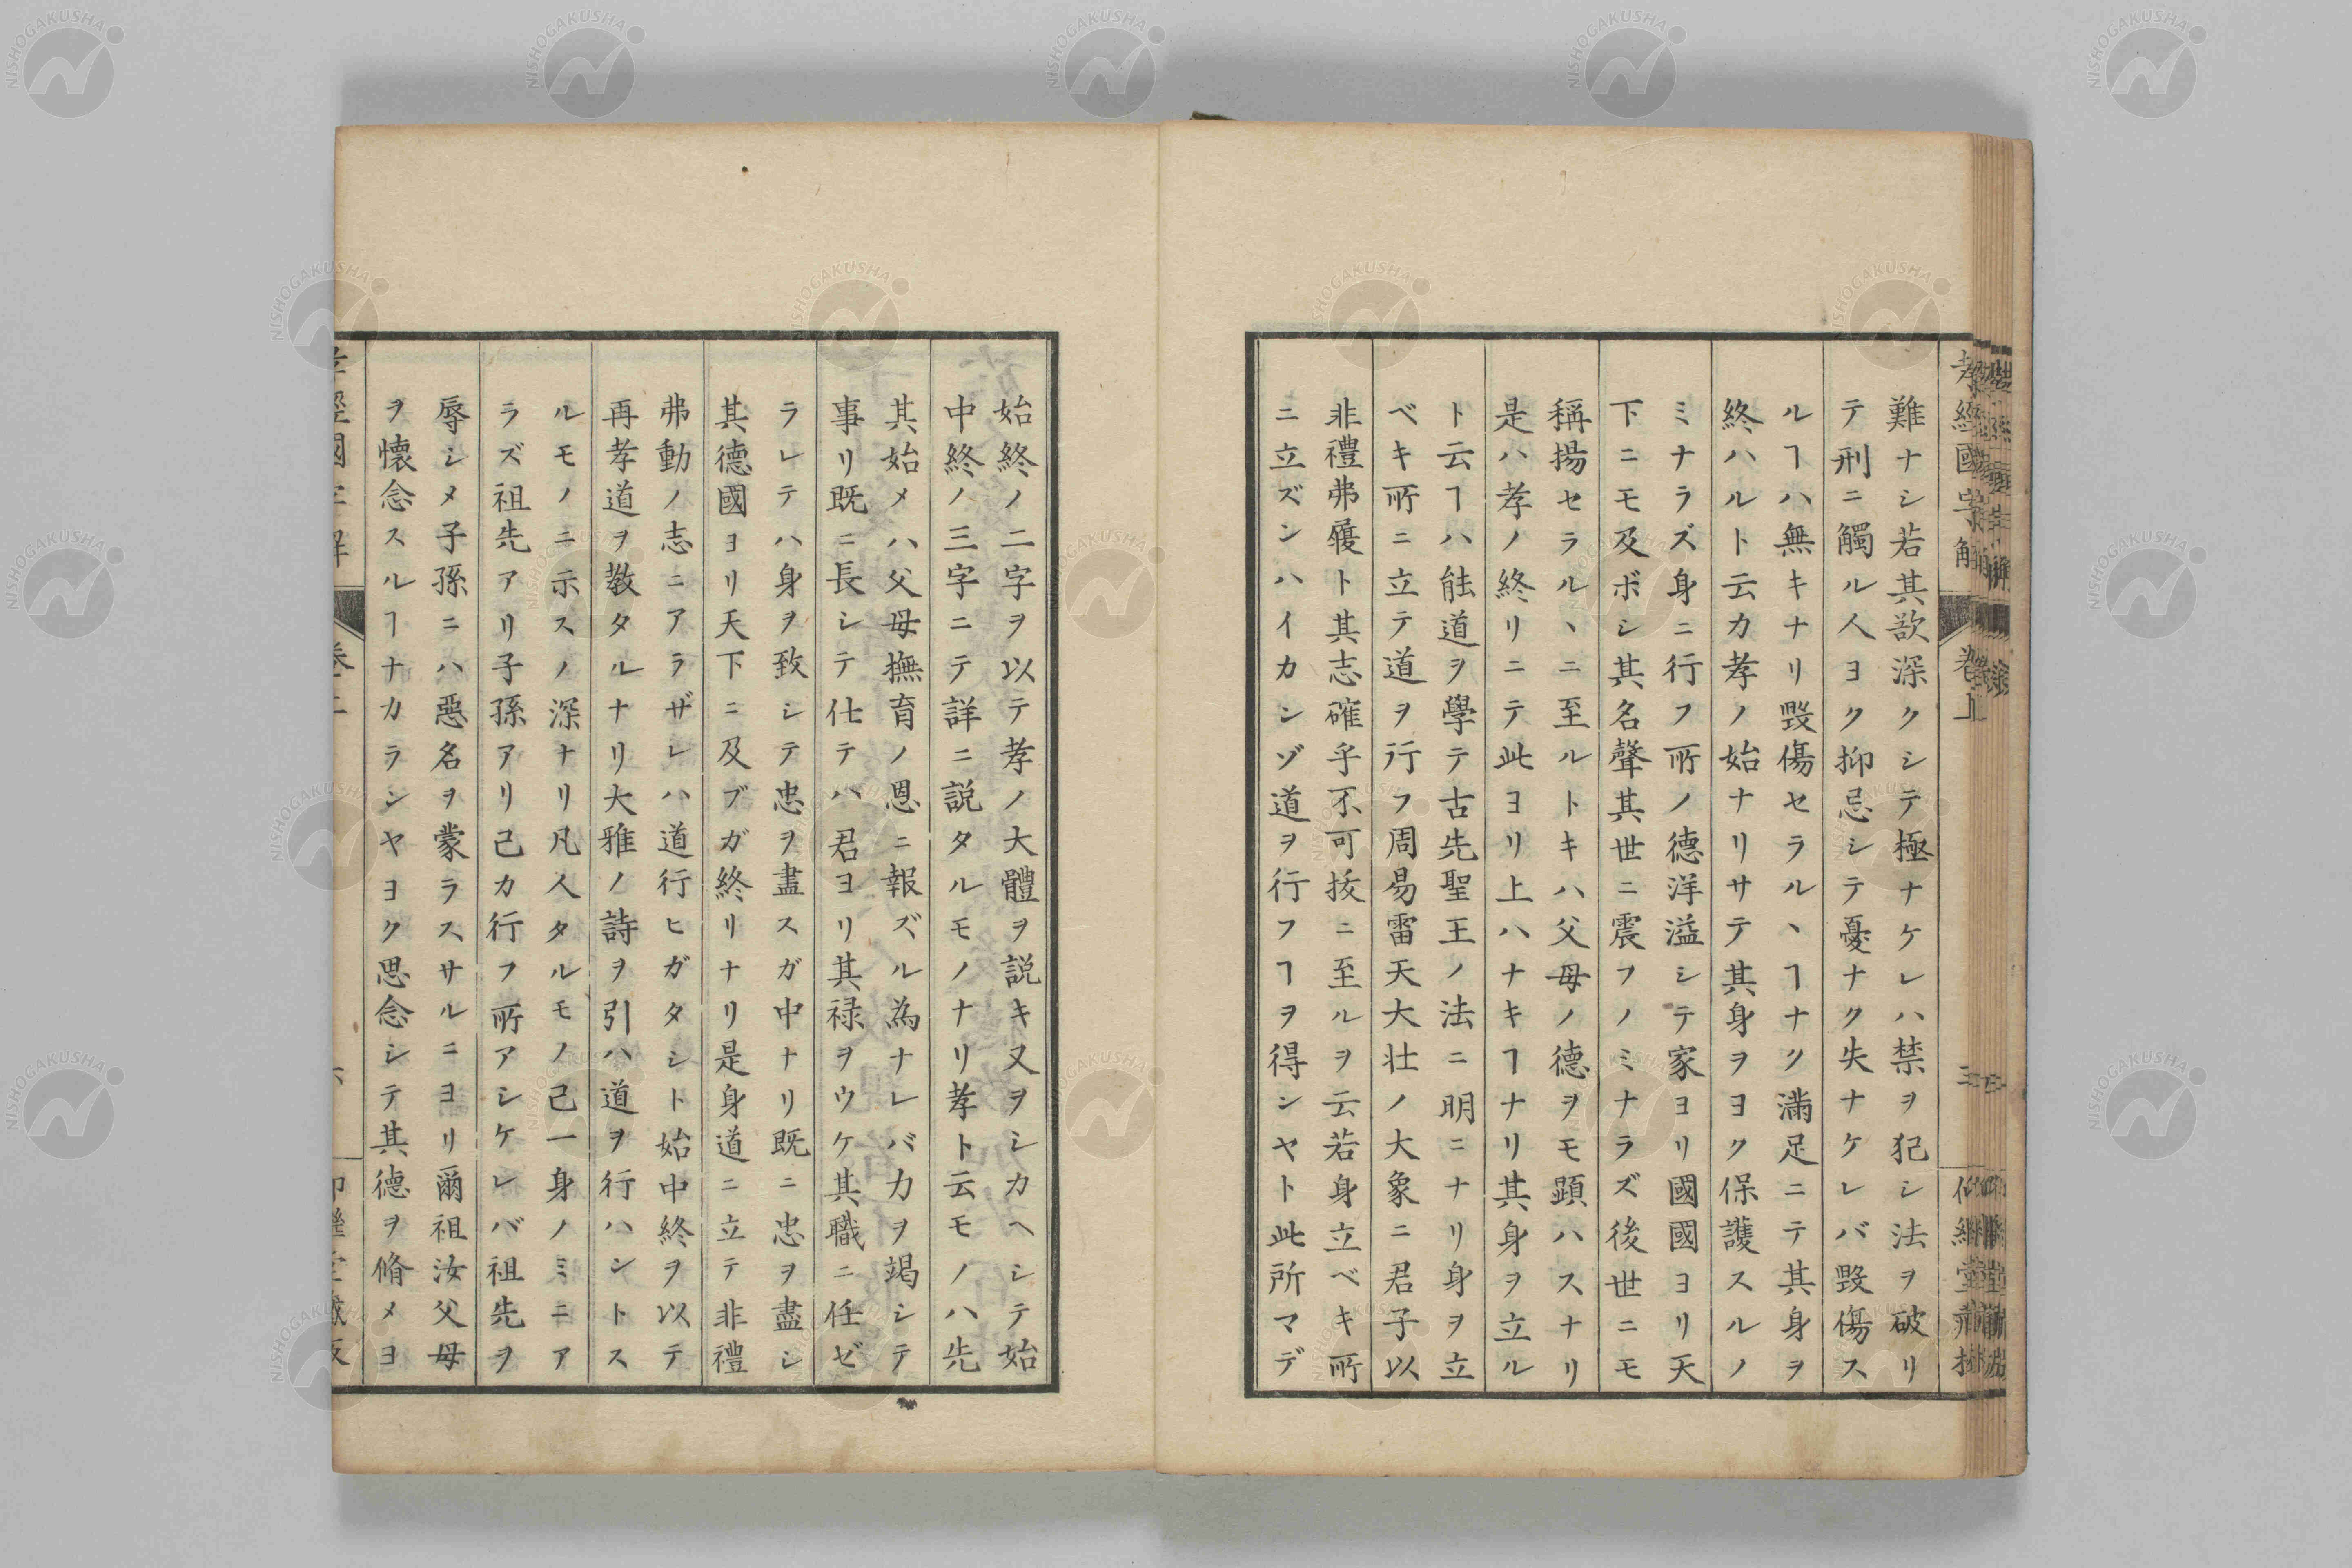 難ナシ若其欲深クシテ極ナケレハ禁ヲ犯シ法ヲ破リ
テ刑ニ觸ル人ヨク抑忌シテ憂ナク失ナケレバ毀傷ス
ルヿハ無キナリ毀傷セラルヽヿナク滿足ニテ其身ヲ
終ハルト云カ孝ノ始ナリサテ其身ヲヨク保護スルノ
ミナラズ身ニ行フ所ノ德洋溢シテ家ヨリ國國ヨリ天
下ニモ及ボシ其名聲其世ニ震フノミナラズ後世ニモ
稱揚セラルヽニ至ルトキハ父母ノ德ヲモ顕ハスナリ
是ハ孝ノ終リニテ此ヨリ上ハナキヿナリ其身ヲ立ル
ト云ヿハ能道ヲ學テ古先聖王ノ法ニ明ニナリ身ヲ立
ベキ所ニ立テ道ヲ行フ周易雷天大壮ノ大象ニ君子以
非禮弗履ト其志確乎不可拔ニ至ルヲ云若身立ベキ所
ニ立ズンハイカンゾ道ヲ行フヿヲ得ンヤト此所マデ
始終ノ二字ヲ以テ孝ノ大體ヲ説キ又ヲシカヘシテ始
中終ノ三字ニテ詳ニ説タルモノナリ孝ト云モノハ先
其始メハ父母撫育ノ恩ニ報ズル為ナレバ力ヲ竭シテ
事リ既ニ長シテ仕テハ君ヨリ其禄ヲウケ其職ニ任ゼ
ラレテハ身ヲ致シテ忠ヲ盡スガ中ナリ既ニ忠ヲ盡シ
其德國ヨリ天下ニ及ブガ終リナリ是身道ニ立テ非禮
弗動ノ志ニアラザレハ道行ヒガタシト始中終ヲ以テ
再孝道ヲ敎タルナリ大雅ノ詩ヲ引ハ道ヲ行ハントス
ルモノニ示スノ深ナリ凡人タルモノ己一身ノミニア
ラズ祖先アリ子孫アリ己カ行フ所アシケレバ祖先ヲ
辱シメ子孫ニハ惡名ヲ蒙ラスサルニヨリ爾祖汝父母
ヲ懐念スルヿナカランヤヨク思念シテ其德ヲ脩メヨ
孝經國字解 卷上
NISHOGAKUSHA